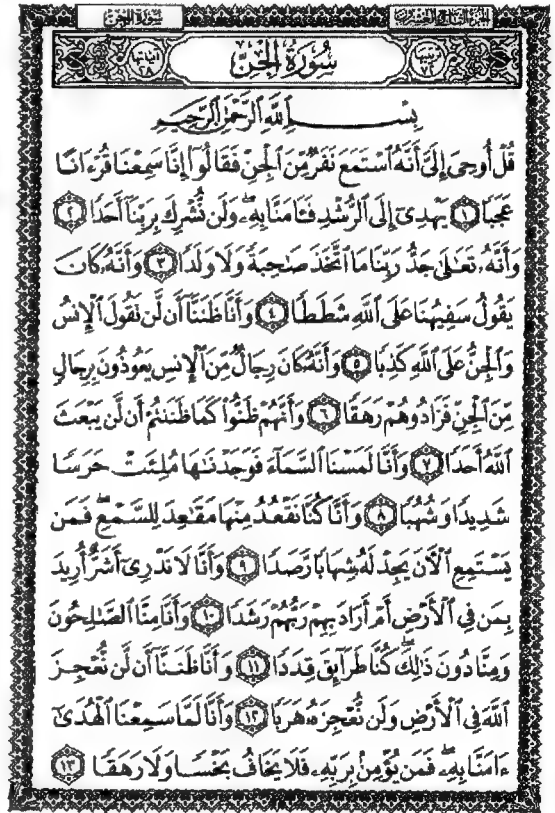 الجزء التاسع والعشرون
سورة الجن
ترتيبها ٧٢
سُورَةُ الجِنِّ
آياتها ٢٨
بِسْمِ ٱللَّهِ ٱلرَّحْمَٰنِ ٱلرَّحِيمِ
قُلْ أُوحِىَ إِلَىَّ أَنَّهُ ٱسْتَمَعَ نَفَرٌ مِّنَ ٱلْجِنِّ فَقَالُوٓا۟ إِنَّا سَمِعْنَا قُرْءَانًا
عَجَبًا ١ يَهْدِىٓ إِلَى ٱلرُّشْدِ فَـَٔامَنَّا بِهِۦ وَلَن نُّشْرِكَ بِرَبِّنَآ أَحَدًا ٢
وَأَنَّهُۥ تَعَٰلَىٰ جَدُّ رَبِّنَا مَا ٱتَّخَذَ صَٰحِبَةً وَلَا وَلَدًا ٣ وَأَنَّهُۥ كَانَ
يَقُولُ سَفِيهُنَا عَلَى ٱللَّهِ شَطَطًا ٤ وَأَنَّا ظَنَنَّآ أَن لَّن تَقُولَ ٱلْإِنسُ
وَٱلْجِنُّ عَلَى ٱللَّهِ كَذِبًا ٥ وَأَنَّهُۥ كَانَ رِجَالٌ مِّنَ ٱلْإِنسِ يَعُوذُونَ بِرِجَالٍ
مِّنَ ٱلْجِنِّ فَزَادُوهُمْ رَهَقًا ٦ وَأَنَّهُمْ ظَنُّوا۟ كَمَا ظَنَنتُمْ أَن لَّن يَبْعَثَ
ٱللَّهُ أَحَدًا ٧ وَأَنَّا لَمَسْنَا ٱلسَّمَآءَ فَوَجَدْنَٰهَا مُلِئَتْ حَرَسًا
شَدِيدًا وَشُهُبًا ٨ وَأَنَّا كُنَّا نَقْعُدُ مِنْهَا مَقَٰعِدَ لِلسَّمْعِ فَمَن
يَسْتَمِعِ ٱلْءَانَ يَجِدْ لَهُۥ شِهَابًا رَّصَدًا ٩ وَأَنَّا لَا نَدْرِىٓ أَشَرٌّ أُرِيدَ
بِمَن فِى ٱلْأَرْضِ أَمْ أَرَادَ بِهِمْ رَبُّهُمْ رَشَدًا ١٠ وَأَنَّا مِنَّا ٱلصَّٰلِحُونَ
وَمِنَّا دُونَ ذَٰلِكَ كُنَّا طَرَآئِقَ قِدَدًا ١١ وَأَنَّا ظَنَنَّآ أَن لَّن نُّعْجِزَ
ٱللَّهَ فِى ٱلْأَرْضِ وَلَن نُّعْجِزَهُۥ هَرَبًا ١٢ وَأَنَّا لَمَّا سَمِعْنَا ٱلْهُدَىٰٓ
ءَامَنَّا بِهِۦ فَمَن يُؤْمِنۢ بِرَبِّهِۦ فَلَا يَخَافُ بَخْسًا وَلَا رَهَقًا ١٣